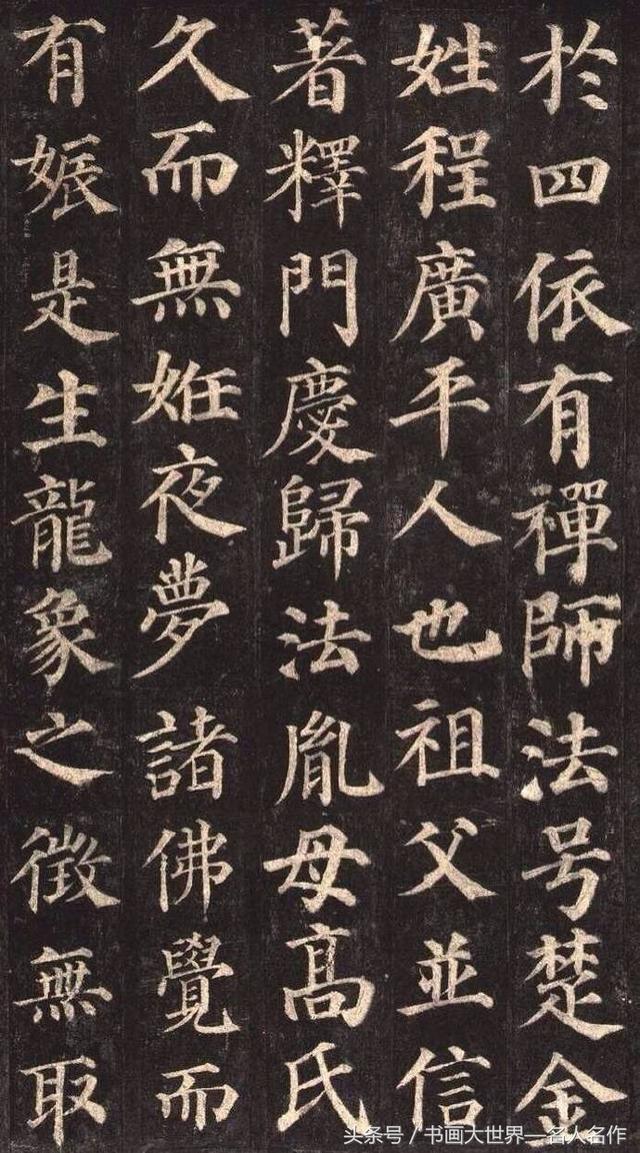 於四依有禪師法号楚金
姓程廣平人也祖父並信
著釋門慶歸法胤母髙氏
久而無姙夜夢諸佛覺而
有娠是生龍象之徵無取
头条号/书画大世界—名人名作